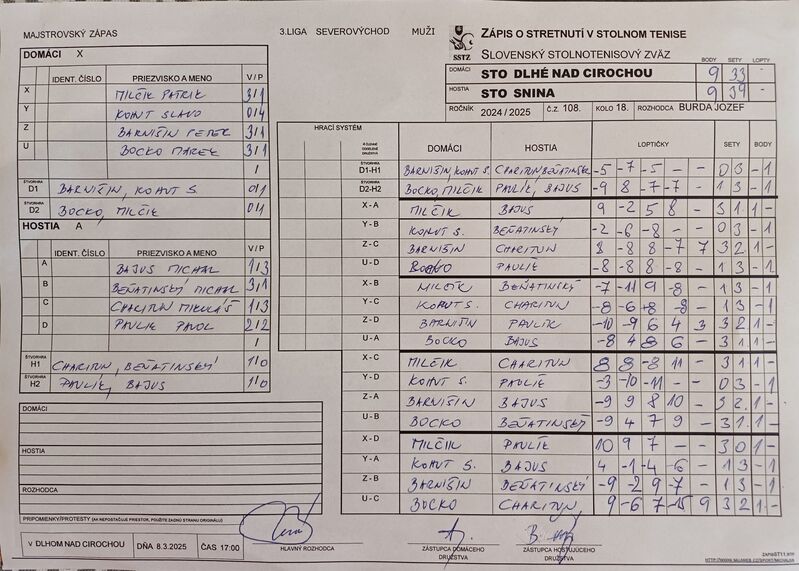 MAJSTROVSKÝ ZÁPAS 3.LIGA SEVEROVÝCHOD MUŽI
ZÁPIS O STRETNUTÍ V STOLNOM TENISE
SSTZ SLOVENSKÝ STOLNOTENISOVÝ ZVÄZ BODY SETY LOPTY
DOMÁCI STO DLHÉ NAD CIROCHOU 9 33 -
HOSTIA STO SNINA 9 39 -
ROČNÍK 2024 / 2025 č.z. 108. KOLO 18. ROZHODCA BURDA JOZEF
DOMÁCI X
IDENT. ČÍSLO PRIEZVISKO A MENO V / P
X MILČIK PATRIK 3/1
Y KOHUT SLAVO 0/4
Z BARNIŠIN PETER 3/1
U BOCKO MAREK 3/1
/
ŠTVORHRA D1 BARNIŠIN, KOHUT S. 0/1
ŠTVORHRA D2 BOCKO, MILČIK 0/1
HOSTIA A
IDENT. ČÍSLO PRIEZVISKO A MENO V / P
A BAJUS MICHAL 1/3
B BEŇATINSKÝ MICHAL 3/1
C CHARITUN MIKULÁŠ 1/3
D PAVLIK PAVOL 2/2
/
ŠTVORHRA H1 CHARITUN, BEŇATINSKÝ 1/0
ŠTVORHRA H2 PAVLÍK, BAJUS 1/0
HRACÍ SYSTÉM DOMÁCI HOSTIA LOPTIČKY SETY BODY
ŠTVORHRA D1-H1 BARNIŠIN, KOHUT S. CHARITUN BEŇATINSKÝ -5 -7 -5 - - 0 3 - 1
ŠTVORHRA D2-H2 BOCKO, MILČIK PAVLÍK, BAJUS -9 8 -7 -7 - 1 3 - 1
X - A MILČIK BAJUS 9 -2 5 8 - 3 1 1 -
Y - B KOHUT S. BEŇATINSKÝ -2 -6 -8 - - 0 3 - 1
Z - C BARNIŠIN CHARITUN 8 -8 8 -7 7 3 2 1 -
U - D BOCKO PAVLÍK -8 -8 8 -8 - 1 3 - 1
X - B MILČIK BEŇATINSKÝ -7 -11 9 -8 - 1 3 - 1
Y - C KOHUT S. CHARITUN -8 -6 +8 -8 - 1 3 - 1
Z - D BARNIŠIN PAVLÍK -10 -9 6 4 3 3 2 1 -
U - A BOCKO BAJUS -8 4 8 6 - 3 1 1 -
X - C MILČIK CHARITUN 8 8 -8 11 - 3 1 1 -
Y - D KOHUT S. PAVLÍK -3 -10 -11 - - 0 3 - 1
Z - A BARNIŠIN BAJUS -9 9 8 10 - 3 1 -
U - B BOCKO BEŇATINSKÝ -9 4 7 9 - 3 1 1 -
X - D MILČIK PAVLÍK 10 9 7 - - 3 0 1 -
Y - A KOHUT S. BAJUS 4 -1 -4 -6 - 1 3 - 1
Z - B BARNIŠIN BEŇATINSKÝ -9 -2 9 -7 - 1 3 - 1
U - C BOCKO CHARITUN 9 -6 7 -15 9 3 2 1 -
DOMÁCI
HOSTIA
ROZHODCA
PRIPOMIENKY/PROTESTY (AK NEPOSTAČUJE PRIESTOR, POUŽITE ZADNÚ STRANU ORIGINÁLU)
V DLHOM NAD CIROCHOU DŇA 8.3.2025 ČAS 17:00
HLAVNÝ ROZHODCA
ZÁSTUPCA DOMÁCEHO DRUŽSTVA
ZÁSTUPCA HOSŤUJÚCEHO DRUŽSTVA